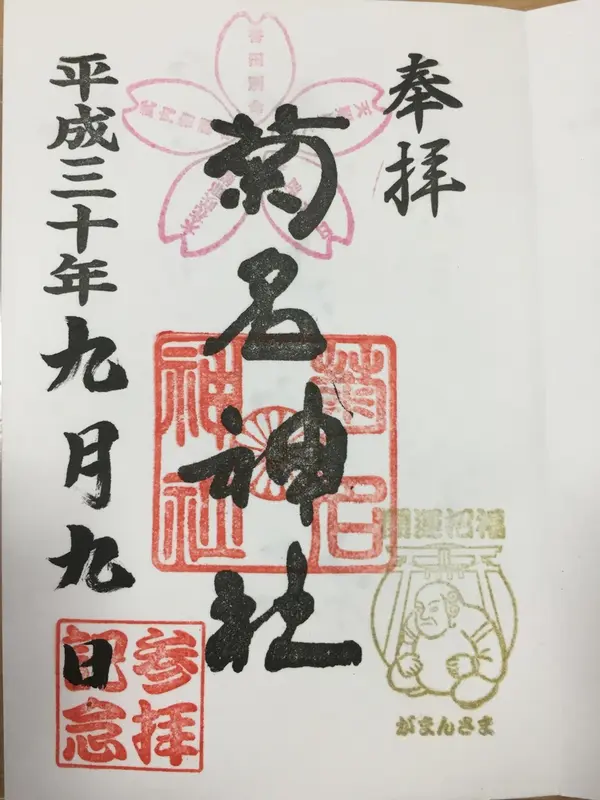 奉拝
菊名神社
平成三十年九月九日
菊名
神社
開運招福
がまんさま
参拝
記念